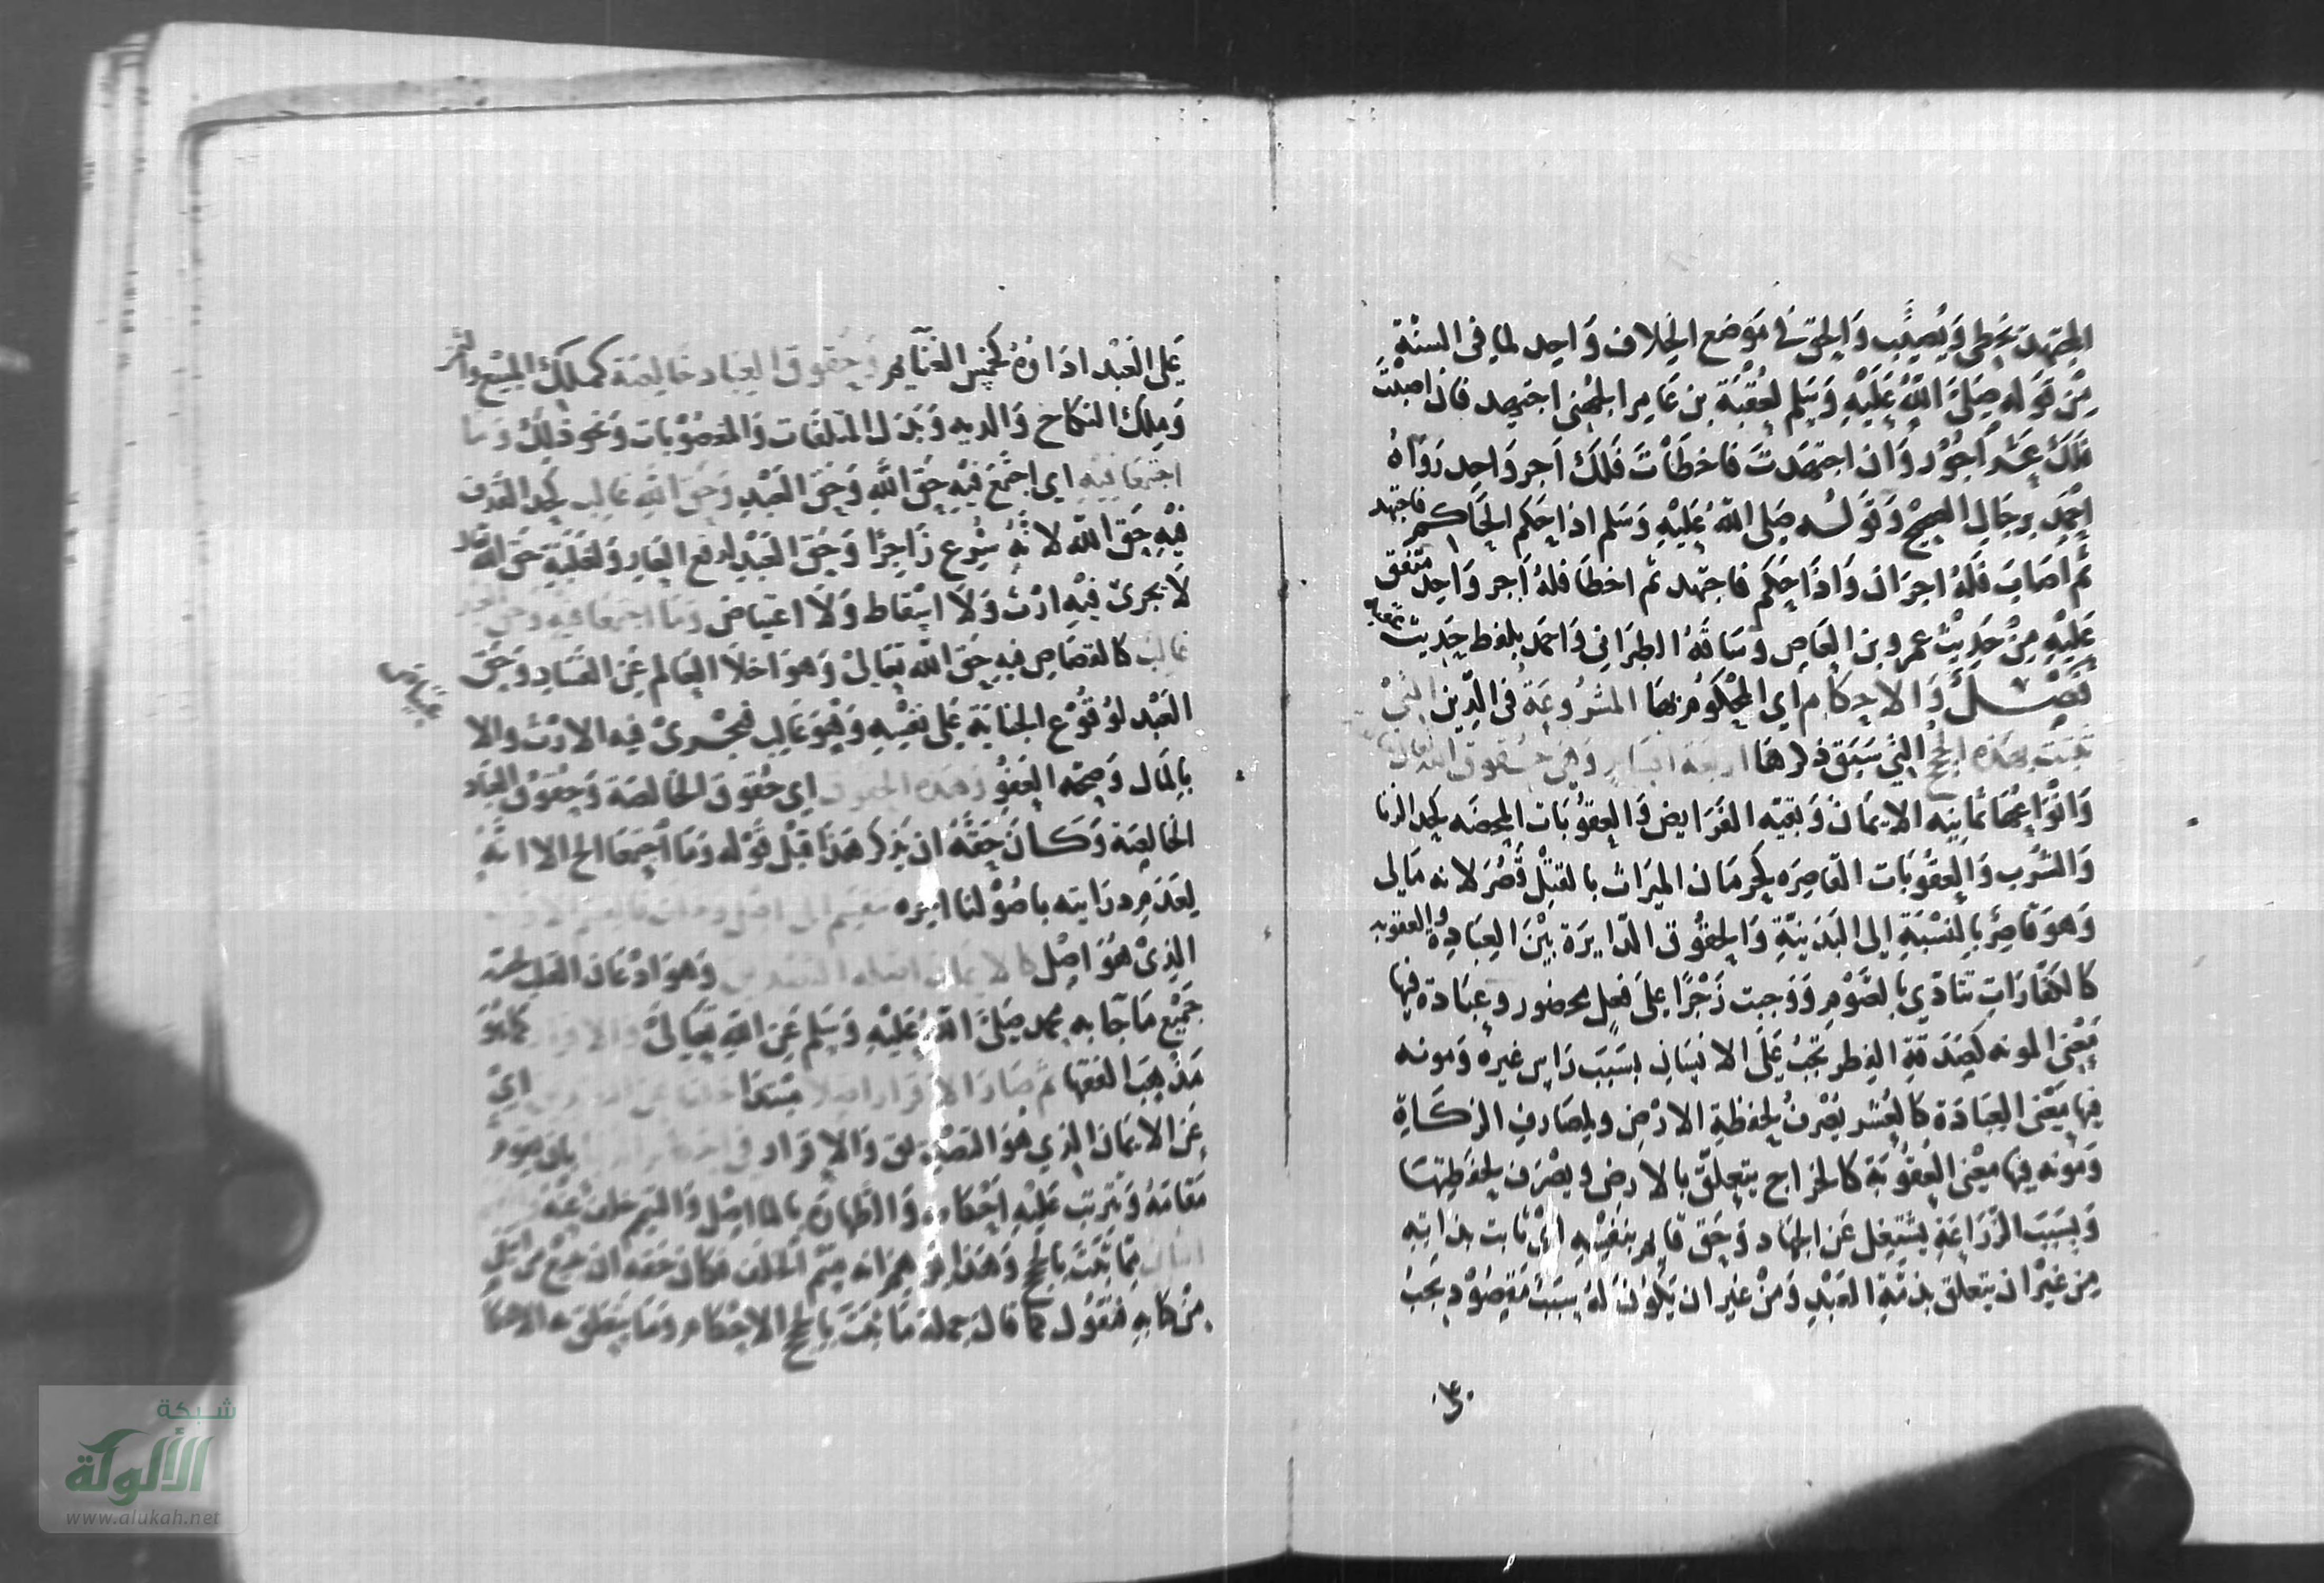 المجتهد يخطي ويصيب والحق في موضع الخلاف واحد لما في السنة
من قوله صلى الله عليه وسلم لعقبة بن عامر الجهني اجتهد فان اصبت
فلك عشر اجور وان اجتهدت فاخطأت فلك اجر واحد رواه
احمد برجال الصحيح وقوله صلى الله عليه وسلم اذا حكم الحاكم فاجتهد
ثم اصاب فله اجران واذا حكم فاجتهد ثم اخطا فله اجر واحد متفق
عليه من حديث عمرو بن العاص وساقه الطبراني واحمد بلفظ حديث
فصل والاحكام اي المحكوم بها المشروعة في الدين التي
تثبت بهذه الحجج التي سبق ذكرها اربعة اقسام وهي حقوق الله تعالى
وانواعها ثمانيه الايمان وبقية الفرايض والعقوبات المحضه كحد الزنا
والشرب والعقوبات القاصره كحرمان الميراث بالقتل قصر لانه مالي
وهو قاصر بالنسبة الى البدنية والحقوق الدايرة بين العبادة والعقوبه
كالكفارات تتادي بالصوم ووجبت زجرا على فعل محضور وعبادة فيها
معنى المونه كصدقة الفطر تجب على الانسان بسبب راس غيره ومونه
فيها معنى العبادة كالعشر يصرف لحفظة الارض ولمصارف الزكاة
ومونه فيها معنى العقوبة كالخراج يتعلق بالارض ويصرف لحفظتها
وبسبب الزراعة يشتغل عن الجهاد وحق قايم بنفسه اي ثابت بذاته
من غير ان يتعلق بذمة العبد ومن غير ان يكون له سبب مقصود يجب
على العبد اداؤه كخمس الغنايم وحقوق العباد خالصة كملك المبيع والثمن
وملك النكاح والديه وبدل المتلفات والمغصوبات ونحو ذلك وما
اجتمعا فيه اي اجتمع فيه حق الله وحق العبد وحق الله غالب كحد القذف
فيه حق الله لانه شرع زاجرا وحق العبد لدفع العار ولغلبة حق الله
لا يجري فيه ارث ولا اسقاط ولا اعتياض وما اجتمعا فيه وحق العبد
غالب كالقصاص فيه حق الله تعالى وهو اخلا العالم عن الفساد وحق
العبد لوقوع الجناية على نفسه وهو غالب فيجري فيه الارث والا
بالمال وصحة العفو وهذه الحقوق اي حقوق الخالصة وحقوق العباد
الخالصة وكان حقه ان يذكر هذا قبل قوله وما اجتمعا الخ الا انه
لعدم درايته باصولنا اخره تنقسم الى اصل وخلف فالقسم الاول
الذي هو اصل كالايمان اصله التصديق وهو اذعان القلب
جميع ما جا به محمد صلى الله عليه وسلم عن الله تعالى والاقرار كما هو
مذهب الفقها ثم صار الاقرار اصلا مبتدا خلفا عن التصديق اي
عن الايمان الذي هو التصديق والاقرار في احكام الدنيا بان يقوم
مقامه ويترتب عليه احكامه والطهارة بالما اصل والتيمم خلف عنه
مما ثبت بالحجج وهذا انه قسم الخلف فكان حقه ان
من كتابه فنقول كما قال جملة ما ثبت بالحجج الاحكام وما يتعلق به الاحكا
شبكة
الألوكة
www.alukah.net